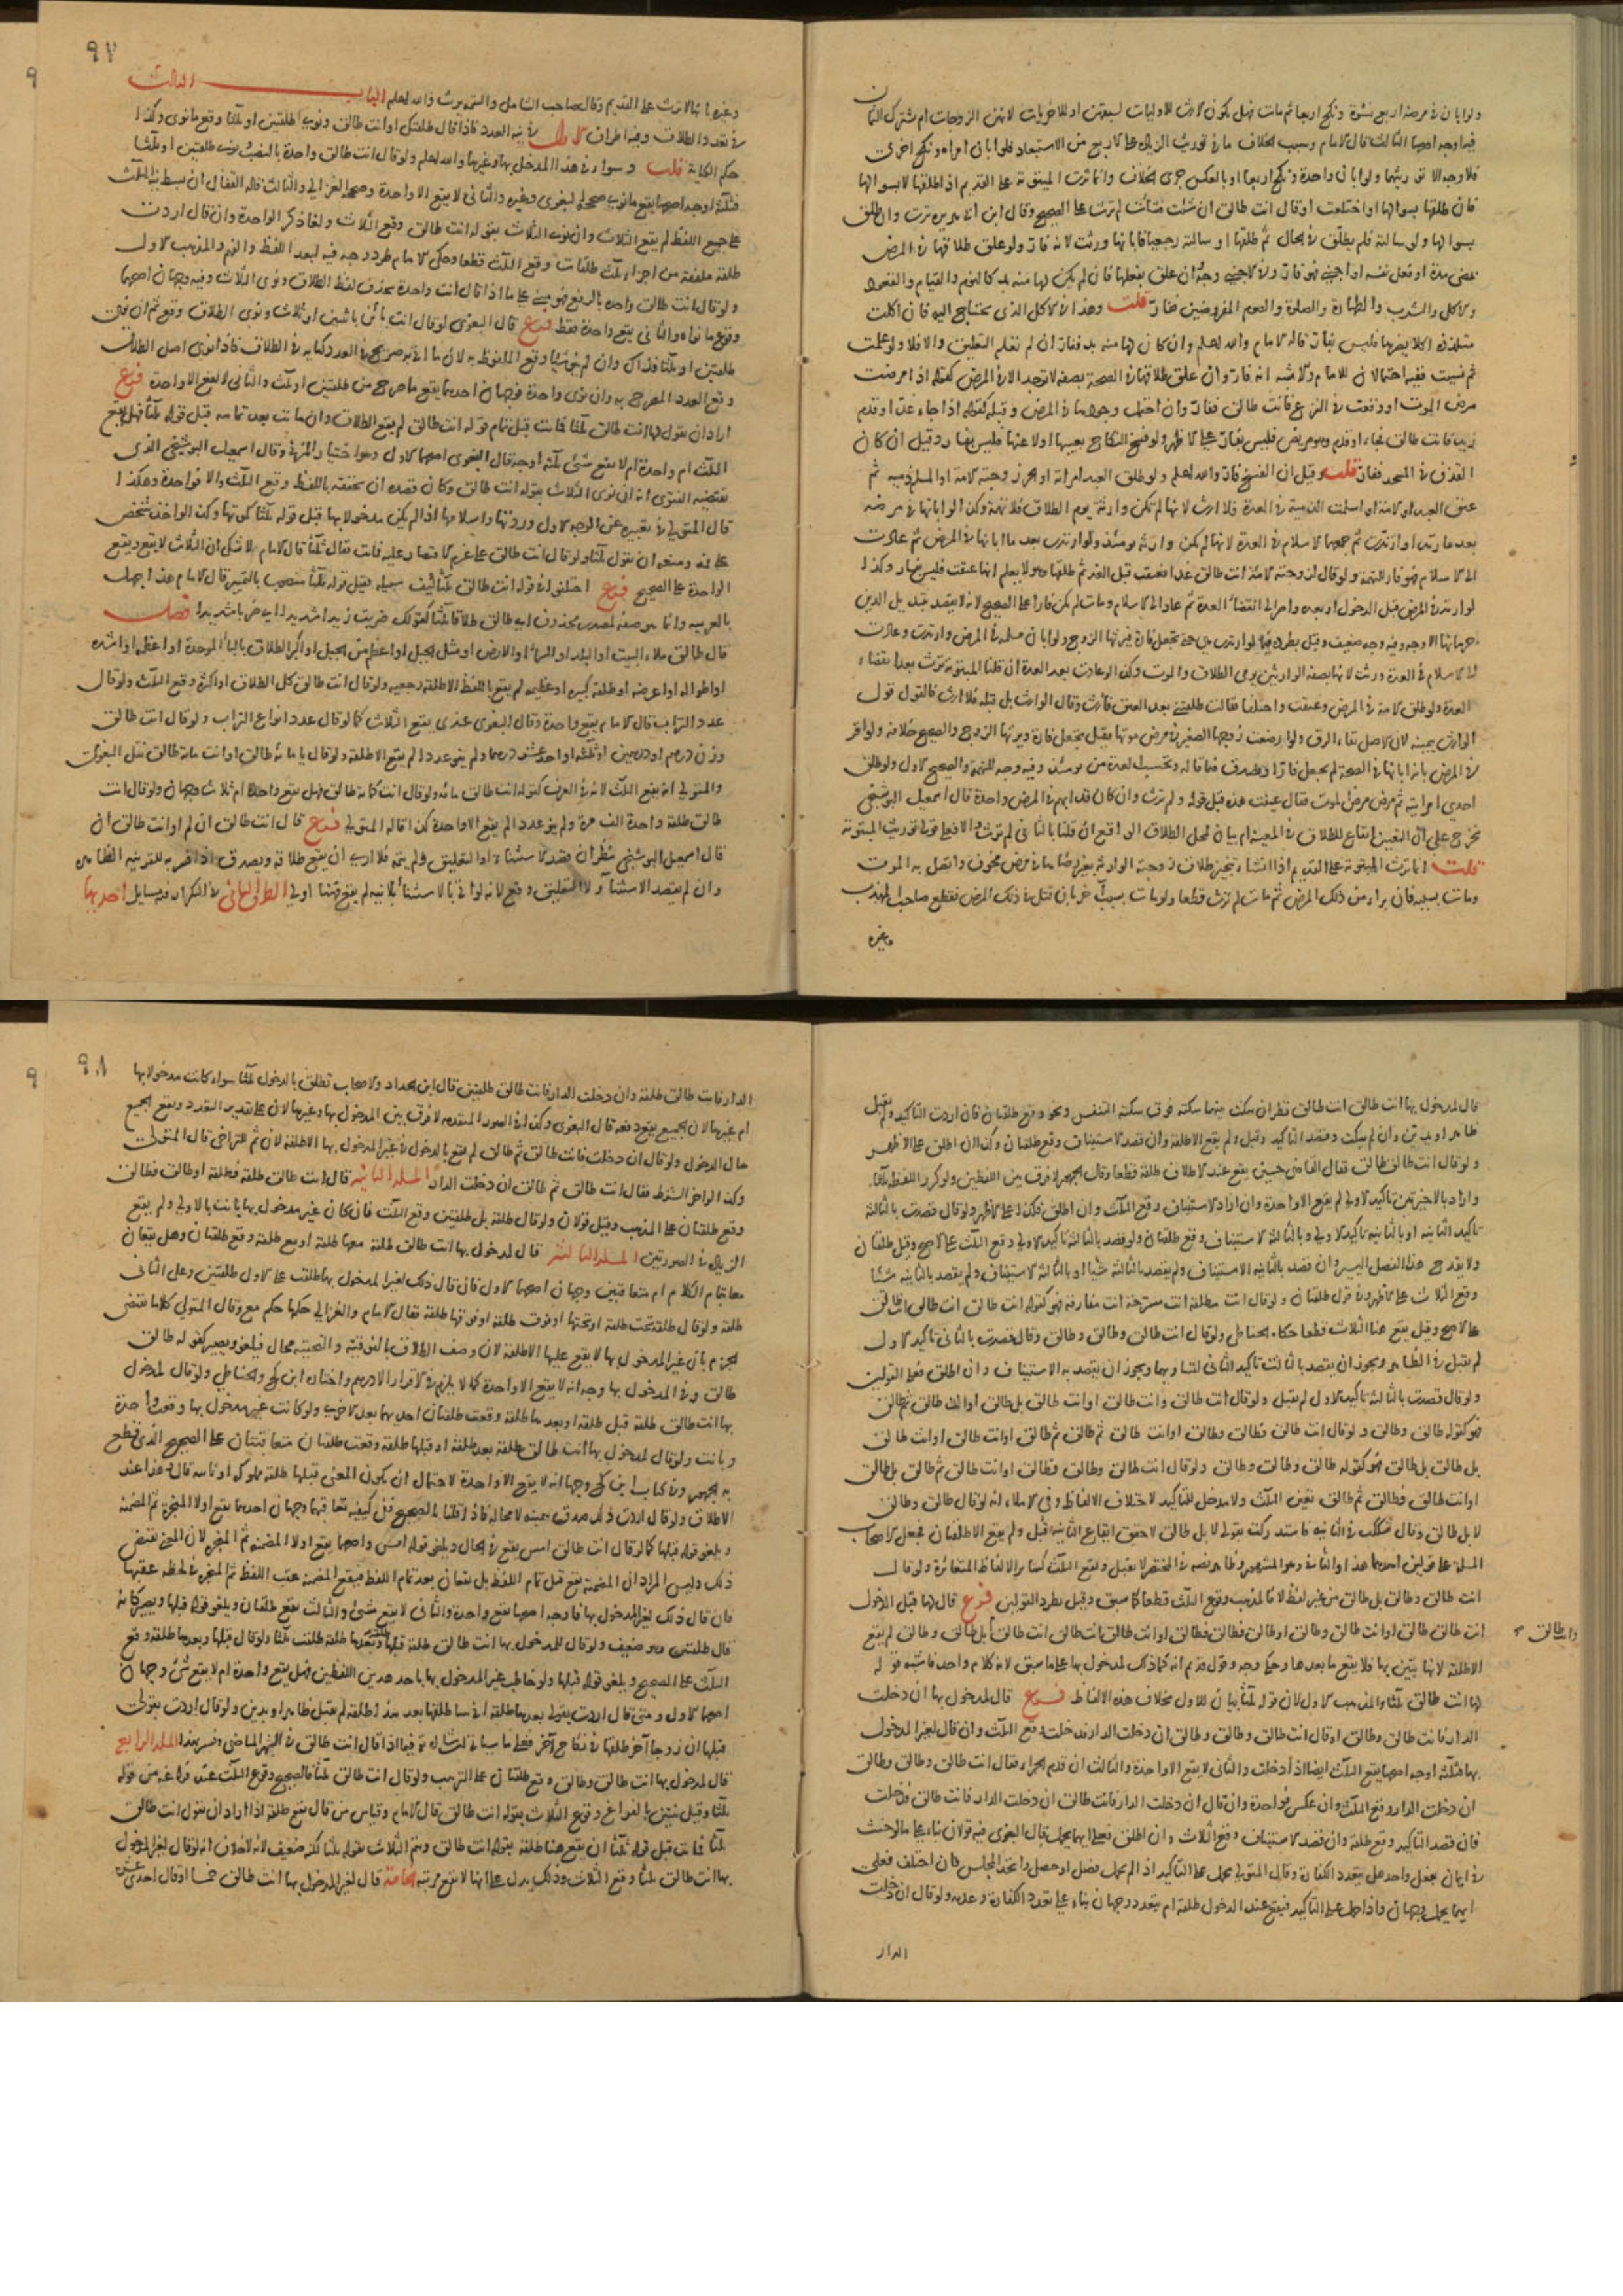 ولو ابان في مرضه اربع نسوة ونكح اربعا ثم مات فهل يكون الارث للاوليات لسبقهن او للاخريات لانهن الزوجات ام يشترك الثمان
فيه اوجه اصحها الثالث قال الامام وسبب الخلاف ما في توريث الزيادة على الاربع من الاستبعاد فلو ابان امراة ونكح اخرى
فلا وجه الا توريثهما ولو ابان واحدة ونكح اربعا او بالعكس جرى الخلاف وانما ترث المبتوتة على القديم اذا طلقها لا بسوالها
فان طلقها بسوالها او اختلعت او قال انت طالق ان شئت فشاءت لم ترث على الصحيح وقال ابن ابي هريرة ترث وان طلق
بسوالها ولو سالته فلم يطلق في الحال ثم طلقها او سالته رجعيا فابانها ورثت لانه فار ولو علق طلاقها في المرض
بمضي مدة او فعل نفسه او اجنبي فهو فار وفي الاجنبي وجه وان علق بفعلها فان لم يكن لها منه بد كالنوم والقيام والقعود
والاكل والشرب والطهارة والصلوة والصوم المفروضين ففار قلت وهذا في الاكل الذي يحتاج اليه فان اكلت
متلذذة اكلا يضرها فليس بفار قاله الامام والله اعلم وان كان لها منه بد ففار ان لم تعلم التعليق والا فلا ولو علمت
ثم نسيت ففيه احتمالان للامام والاشبه انه فار وان علق طلاقها في الصحة بصفة لا توجد الا في المرض كقوله اذا مرضت
مرض الموت او وقعت في النزع فانت طالق ففار وان احتمل وجودها في المرض وقبله كقوله اذا جاء غد او قدم
زيد فانت طالق فجاء او قدم وهو مريض فليس بفار على الاظهر ولو فسخ النكاح بعيبها او لاعنها فليس بفار وقيل ان كان
القذف في المرض ففار قلت وقيل ان الفسخ فار والله اعلم ولو طلق العبد امراته او الحر زوجته الامة او المسلم ذمية ثم
عتق العبد او الامة او اسلمت الذمية في العدة فلا ارث لانها لم تكن وارثة يوم الطلاق فلا تهمة وكذا لو ابانها في مرضه
بعد ما ارتد او ارتدت ثم جمعهما الاسلام في العدة لانها لم تكن وارثة يومئذ ولو ارتدت بعد ما ابانها في المرض ثم عادت
الى الاسلام فهو فار للتهمة ولو قال لزوجته الامة انت طالق غدا فعتقت قبل الغد ثم طلقها وهو لا يعلم انها عتقت فليس بفار وكذا
لو ارتد في المرض قبل الدخول او بعده واصر الى انقضاء العدة ثم عاد الى الاسلام ومات لم يكن فارا على الصحيح لانه لا يقصد بتبديل الدين
حرمانها الاوجه وفيه وجه ضعيف وقيل بطرده فيما لو ارتدت هي حتى تجعل فارة فيرثها الزوج ولو ابان مسلمة في المرض وارتدت وعادت
الى الاسلام في العدة ورثت لانها بصفة الوارثين يومي الطلاق والموت وكذا لو عادت بعد العدة ان قلنا المبتوتة ترث بعد انقضاء
العدة ولو طلق الامة في المرض وعتقت واختلفا فقالت طلقني بعد العتق فارث وقال الوارث بل قبله فلا ارث فالقول قول
الوارث بيمينه لان الاصل بقاء الرق ولو ارضعت زوجها الصغير في مرض موتها فقيل تجعل فارة ويرثها الزوج والصحيح خلافه ولو اقر
في المرض بانه ابانها في الصحة لم يجعل فارا ويصدق فيما قاله وتحسب العدة من يومئذ وفيه وجه للتهمة والصحيح الاول ولو طلق
احدى امراتيه ثم مرض مرض الموت فقال عينت هذه قبل قوله ولم ترث وان كان قد ابهم في المرض واحدة قال اسمعيل البوشنجي
تخرج على ان التعيين ايقاع للطلاق في المعينة ام بيان لمحل الطلاق الواقع ان قلنا بالثاني لم ترث والا فعلى قولي توريث المبتوتة
قلت انما ترث المبتوتة على القديم اذا انشا تنجيز طلاق زوجته الوارثة بغير رضاها في مرض مخوف واتصل به الموت
ومات بسببه فان براء من ذلك المرض ثم مات لم ترث قطعا ولو مات بسبب آخر بان قتل في ذلك المرض فقطع صاحب المهذب
وغيره
٩٧
وغيره بانها لا ترث على القديم وقال صاحب الشامل والتتمة يرث والله اعلم الباب الثالث
في تعدد الطلاق وفيه اطراف الاول في نية العدد فاذا قال طلقتك او انت طالق ونوى طلقتين او ثلثا وقع ما نوى وكذا
حكم الكناية قلت وسواء في هذا المدخول بها وغيرها والله اعلم ولو قال انت طالق واحدة بالنصب ونوى طلقتين او ثلثا
فثلثة اوجه اصحها يقع ما نوى صححه البغوي وغيره والثاني لا يقع الا واحدة وصححه الغزالي والثالث قاله القفال ان بسط نية الثلث
على جميع اللفظ لم يقع الثلاث وان نوى الثلاث بقوله انت طالق وقع الثلاث ولغا ذكر الواحدة وان قال اردت
طلقة ملفقة من اجزاء ثلث طلقات وقع الثلث قطعا وحكى الامام طرد وجه فيه لبعد اللفظ والفهم والمذهب الاول
ولو قال انت طالق واحدة بالرفع فهو مبني على ما اذا قال انت واحدة بحذف لفظ الطلاق ونوى الثلاث وفيه وجهان اصحهما
وقوع ما نواه والثاني يقع واحدة فقط فرع قال البغوي لو قال انت بائن باثنتين او ثلاث ونوى الطلاق وقع ثم ان نوى
طلقتين او ثلثا فذاك وان لم ينو شيئا وقع الملفوظ به لان ما اتى به صريح في العدد كناية في الطلاق فاذا نوى اصل الطلاق
وقع العدد المصرح به وان نوى واحدة فوجهان احدهما يقع ما صرح من طلقتين او ثلث والثاني لا يقع الا واحدة فرع
اراد ان يقول لها انت طالق ثلثا فماتت قبل تمام قوله انت طالق لم يقع الطلاق وان ماتت بعد تمامه قبل قوله ثلثا فهل يقع
الثلث ام واحدة ام لا يقع شئ ثلثة اوجه قال البغوي اصحها الاول وهو اختيار المزني وقال اسمعيل البوشنجي الذي
تقتضيه الفتوى انه ان نوى الثلاث بقوله انت طالق وكان قصده ان يحققه باللفظ وقع الثلث والا فواحدة وهكذا
قال المتولي في تعبيره عن الوجه الاول وردتها واسلامها اذا لم يكن مدخولا بها قبل قوله ثلثا كموتها وكذا لو اخذ شخص
على فمه ومنعه ان يقول ثلثا ولو قال انت طالق على عزم الاقتصار عليه فماتت فقال ثلثا قال الامام لا شك ان الثلاث لا يقع ويقع
الواحدة على الصحيح فرع اختلفوا في قوله انت طالق ثلثا كيف سبيله فقيل قوله ثلثا منصوب بالتفسير قال الامام هذا جهل
بالعربية وانما هو صفة لمصدر محذوف اي طالق طلاقا ثلثا كقولك ضربت زيدا شديدا اي ضربا شديدا فصل
قال طالق ملاء البيت او البلد او السماء او الارض او مثل الجبل او اعظم من الجبل او اكبر الطلاق بالباء الموحدة او اعظمه او اشده
او اطوله او اعرضه او طلقة كبيرة او عظيمة لم يقع باللفظ الا طلقة رجعية ولو قال انت طالق كل الطلاق او اكثره وقع الثلث ولو قال
عدد التراب قال الامام يقع واحدة وقال البغوي عندي يقع الثلاث كما لو قال عدد انواع التراب ولو قال انت طالق
وزن درهم او درهمين او ثلثة او احد عشر درهما ولم ينو عددا لم يقع الا طلقة ولو قال يا مائة طالق او انت مائة طالق نقل البغوي
والمتولي انه يقع الثلث لانه في العرف كقوله انت طالق مائة ولو قال انت كمائة طالق فهل يقع واحدة ام ثلاث وجهان ولو قال انت
طالق طلقة واحدة الف مرة ولم ينو عددا لم يقع الا واحدة كذا قاله المتولي فرع قال انت طالق ان لم او انت طالق ان
قال اسمعيل البوشنجي نظر ان قصد الاستثناء او التعليق ولم يتمه فلا ارى ان يقع طلاقه ويصدق اذا فسر به للقرينة الظاهرة
وان لم يقصد الاستثناء ولا التعليق وقع لانه لو اتى بالاستثناء بلا نية لم يقع فهنا اولى الطرف الثاني في التكرار فيه مسايل احديها
قال لمدخول بها انت طالق انت طالق نظر ان سكت بينهما سكتة فوق سكتة التنفس ونحوه وقع طلقتان فان قال اردت التاكيد لم يقبل
ظاهرا ويدين وان لم يسكت وقصد التاكيد قبل ولم يقع الا طلقة وان قصد الاستيناف وقع طلقتان وكذا ان اطلق على الاظهر
ولو قال انت طالق طالق فقال القاضي حسين يقع عند الاطلاق طلقة قطعا وقال الجمهور لا فرق بين اللفظين ولو كرر اللفظة ثلثا
واراد بالاخيرتين تاكيد الاولى لم يقع الا واحدة وان اراد الاستيناف وقع الثلث وان اطلق فكذلك على الاظهر ولو قال قصدت بالثالثة
تاكيد الثانية او بالثانية تاكيد الاولى وبالثالثة الاستيناف وقع طلقتان ولو قصد بالثالثة تاكيد الاولى وقع الثلث على الاصح وقيل طلقتان
ولا يقدح هذا الفصل اليسير وان قصد بالثانية الاستيناف ولم يقصد بالثالثة شيئا او بالثالثة الاستيناف ولم يقصد بالثانية شيئا
وقع الثلاث على الاظهر وفي قول طلقتان ولو قال انت مطلقة انت مسرحة انت مفارقة فهو كقوله انت طالق انت طالق انت طالق
على الاصح وقيل يقع هنا الثلاث قطعا حكاه الحناطي ولو قال انت طالق وطالق وطالق وقال قصدت بالثاني تاكيد الاول
لم يقبل في الظاهر ويجوز ان يقصد بالثالث تاكيد الثاني لتساويهما ويجوز ان يقصد به الاستيناف وان اطلق فعلى القولين
ولو قال قصدت بالثالثة تاكيد الاول لم يقبل ولو قال انت طالق وانت طالق او انت طالق بل طالق او انت طالق ثم طالق
فهو كقوله طالق وطالق ولو قال انت طالق فطالق وطالق او انت طالق ثم طالق ثم طالق او انت طالق
بل طالق بل طالق فهو كقوله طالق وطالق وطالق ولو قال انت طالق وطالق فطالق او انت طالق ثم طالق بل طالق
او انت طالق فطالق ثم طالق تعين الثلث ولا مدخل للتاكيد لاختلاف الالفاظ وفي الاملاء انه لو قال طالق وطالق
لا بل طالق وقال شككت في الثانية فاستدركت بقولي لا بل طالق لاحقق ايقاع الثانية قبل ولم يقع الا طلقتان فجعل الاصحاب
المسلة على قولين احدهما هذا والثاني وهو المشهور وظاهر نصه في المختصر لا يقبل ويقع الثلث كسائر الالفاظ المتغائرة ولو قال
انت طالق وطالق بل طالق من غير لفظ لا فالمذهب وقوع الثلث قطعا كما سبق وقيل بطرد القولين فرع قال لها قبل الدخول
انت طالق طالق او انت طالق وطالق او طالق فطالق او انت طالق انت طالق انت طالق بل طالق وطالق لم يقع
وطالق
الا طلقة لانها تبين بها فلا يقع ما بعدها وحكي وجه وقول قديم انه كما ذلك لمدخول بها على ما سبق لانه كلام واحد فاشبه قوله
لها انت طالق ثلثا والمذهب الاول لان قوله ثلثا بيان للاول بخلاف هذه الالفاظ فرع قال لمدخول بها ان دخلت
الدار فانت طالق وطالق او قال انت طالق وطالق وطالق ان دخلت الدار فدخلت وقع الثلث وان قال لغير المدخول
بها فثلثة اوجه اصحها يقع الثلث ايضا اذا دخلت والثاني لا يقع الا واحدة والثالث ان قدم الجزاء فقال انت طالق وطالق وطالق
ان دخلت الدار وقع الثلث وان عكس فواحدة وان قال ان دخلت الدار فانت طالق ان دخلت الدار فانت طالق فدخلت
فان قصد التاكيد وقع طلقة وان قصد الاستيناف وقع الثلاث وان اطلق فعلى ايهما يحمل قال البغوي فيه قولان بناء على ما لو حنث
في ايمان بفعل واحد هل يتعدد الكفارة وقال المتولي يحمل على التاكيد اذا لم يحصل فصل او حصل واتحد المجلس فان اختلف فعلى
ايهما يحمل وجهان واذا حمل على التاكيد فيقع عند الدخول طلقة ام يتعدد وجهان بناء على تعدد الكفارة وعدمه ولو قال ان دخلت
الدار
٩٨
الدار فانت طالق طلقة وان دخلت الدار فانت طالق طلقتين قال ابن الحداد والاصحاب تطلق بالدخول ثلثا سواء كانت مدخولا بها
ام غيرها لان الجميع يقع دفعة قال البغوي وكذا في الصور المتقدمة لا فرق بين المدخول بها وغيرها لان على تقدير التعدد ويقع الجميع
حال الدخول ولو قال ان دخلت فانت طالق ثم طالق لم يقع بالدخول في غير المدخول بها الا طلقة لان ثم للتراخي قال المتولي
وكذا لو اخر الشرط فقال انت طالق ثم طالق ان دخلت الدار المسلة الثانية قال انت طالق طلقة فطلقة او طالق فطالق
وقع طلقتان على المذهب وقيل قولان ولو قال طلقة بل طلقتين وقع الثلث فان كان غير مدخول بها بانت بالاولى ولم يقع
الزيادة في الصورتين المسلة الثالثة قال لمدخول بها انت طالق طلقة معها طلقة او مع طلقة وقع طلقتان وهل يقعان
معا بتمام الكلام ام متعاقبتين وجهان اصحهما الاول فان قال ذلك لغير المدخول بها طلقت على الاول طلقتين وعلى الثاني
طلقة ولو قال طلقة تحت طلقة او تحتها او فوق طلقة او فوقها طلقة فقال الامام والغزالي حكمها حكم مع وقال المتولي كلاما يقتضي
الجزم بان غير المدخول بها لا يقع عليها الا طلقة لان وصف الطلاق بالفوقية والتحتية محال فيلغو ويصير كقوله طالق
طالق وفي المدخول بها وجه انه لا يقع الا واحدة كما لا يلزم في الاقرار الا درهم واختاره ابن كج والحناطي ولو قال لمدخول
بها انت طالق طلقة قبل طلقة او بعدها طلقة وقعت طلقتان احديهما بعد الاخرى ولو كانت غير مدخول بها وقعت واحدة
وبانت ولو قال لمدخول بها انت طالق طلقة بعد طلقة او قبلها طلقة وقعت طلقتان متعاقبتان على الصحيح الذي قطع
به الجمهور وفي كتاب ابن كج وجه انه لا يقع الا واحدة لاحتمال ان يكون المعنى قبلها طلقة مملوكة او ثابتة قال وهذا عند
الاطلاق ولو قال اردت ذلك صدق بيمينه لا محالة فاذا قلنا بالصحيح ففي كيفية تعاقبهما وجهان احدهما يقع اولا المنجزة ثم المضمنة
ويلغو قوله قبلها كما لو قال انت طالق امس يقع في الحال ويلغى قوله امس واصحهما يقع اولا المضمنة ثم المنجزة لان المعنى يقتضي
ذلك وليس المراد ان المضمنة يقع قبل تمام اللفظ بل يقعان بعد تمام اللفظ فيقع المضمنة عقب اللفظ ثم المنجزة في لحظة عقبها
فان قال ذلك لغير المدخول بها فاوجه اصحها يقع واحدة والثاني لا يقع شئ والثالث يقع طلقتان ويلغو قوله قبلها ويصير كانه
قال طلقتين وهو ضعيف ولو قال للمدخول بها انت طالق طلقة قبلها وبعدها طلقة طلقت ثلثا ولو قال قبلها وبعدها طلقة وقع
الثلث على الصحيح ويلغو قوله قبلها ولو خاطب غير المدخول بها باحد هذين اللفظين فهل يقع واحدة ام لا يقع شئ وجهان
اصحهما الاول ومتى قال اردت بقولي بعدها طلقة اني ساطلقها بعد هذا طلقة لم يقبل ظاهرا ويدين ولو قال اردت بقولي
قبلها ان زوجا آخر طلقها في نكاح آخر فعلى ما سياتي ان شاء الله تع فيما اذا قال انت طالق في الشهر الماضي وفسر بهذا المسلة الرابعة
قال لمدخول بها انت طالق وطالق وقع طلقتان على الترتيب ولو قال انت طالق ثلثا فالصحيح وقوع الثلث عند فراغه من قوله
ثلثا وقيل يتبين بالفراغ وقوع الثلاث بقوله انت طالق قال الامام وقياس من قال يقع طلقة اذا اراد ان يقول انت طالق
ثلثا فماتت قبل قوله ثلثا ان يقع هنا طلقة بقوله انت طالق ويتم الثلاث بقوله ثلثا لكنه ضعيف لانه لا خلاف انه لو قال لغير المدخول
بها انت طالق ثلثا وقع الثلاث وذلك يدل على انها لا يقع مرتبة الخامسة قال لغير المدخول بها انت طالق خمسا او قال احدى عشرة